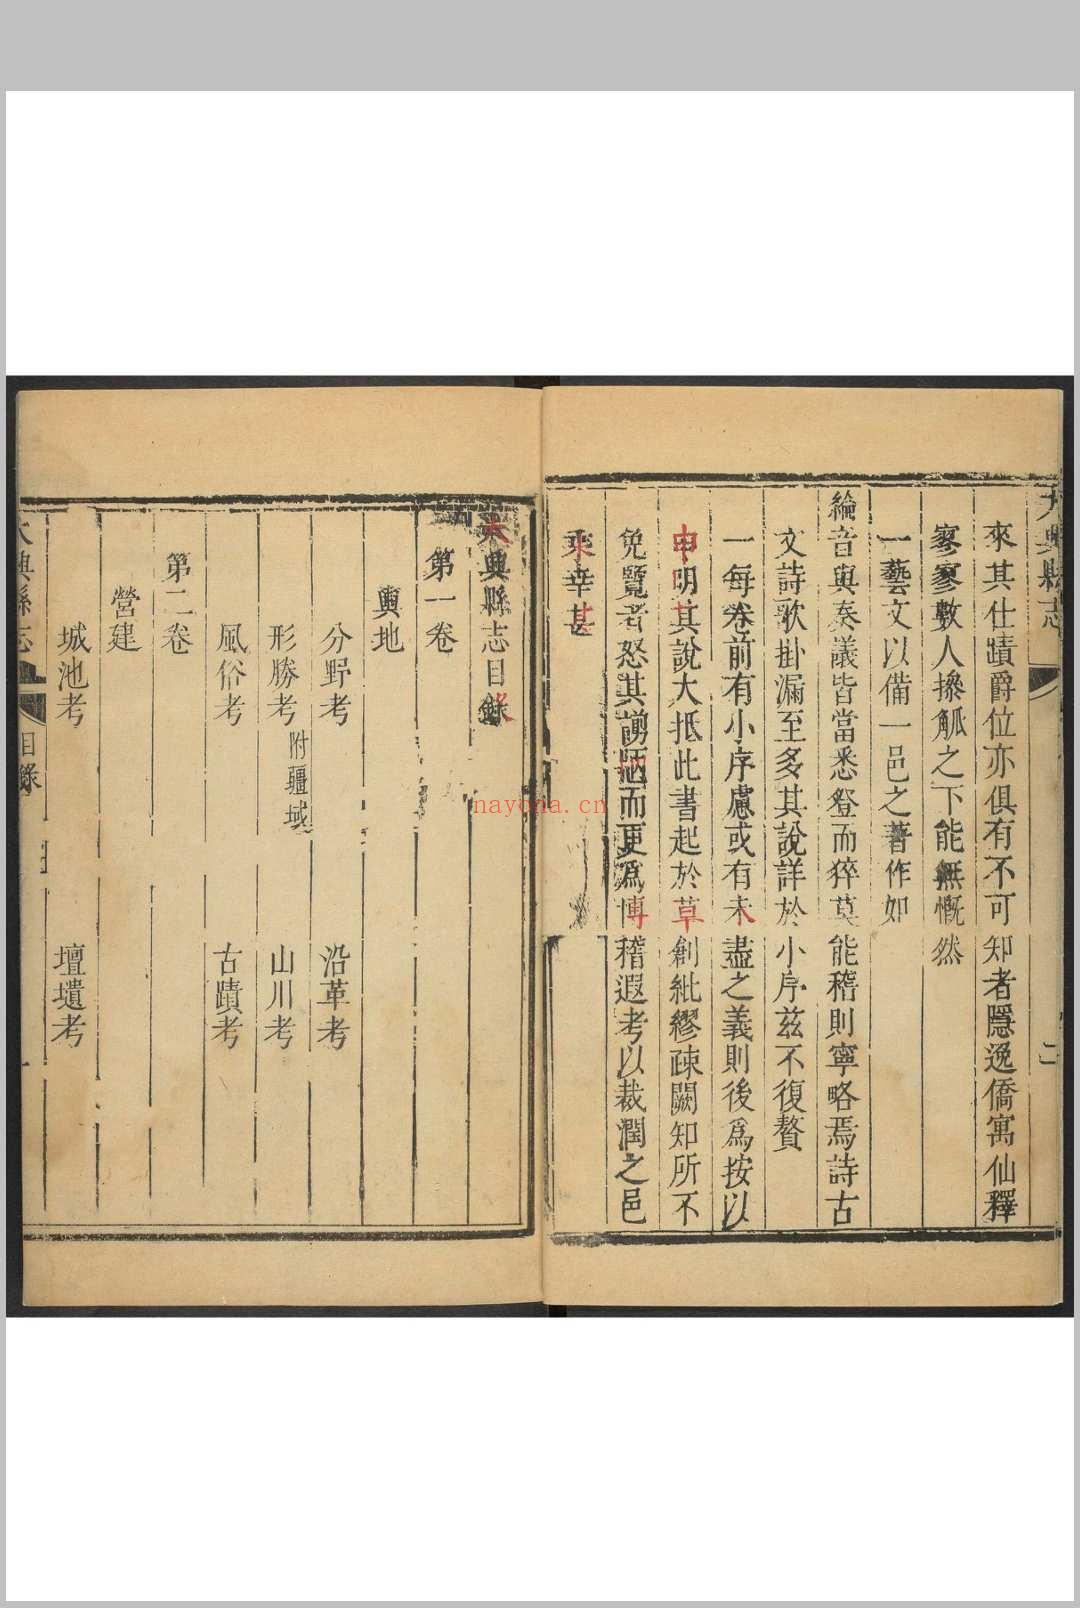 大興縣志
二
來其仕蹟爵位亦俱有不可知者隱逸僑寓仙釋
寥寥數人摻觚之下能無慨然
一藝文以備一邑之著作如
綸音與奏議皆當悉登而猝莫能稽則寧略焉詩古
文詩歌掛漏至多其說詳於小序茲不復贅
一每卷前有小序慮或有未盡之義則後爲按以
申明其說大抵此書起於草創紕繆疎闕知所不
免覽者恕其謭陋而更爲博稽遐考以裁潤之邑
乘幸甚
大興縣志目錄
第一卷
輿地
分野考 沿革考
形勝考 附疆域 山川考
風俗考 古蹟考
第二卷
營建
城池考 壇壝考
大興縣志 目錄 一
nayona.cn